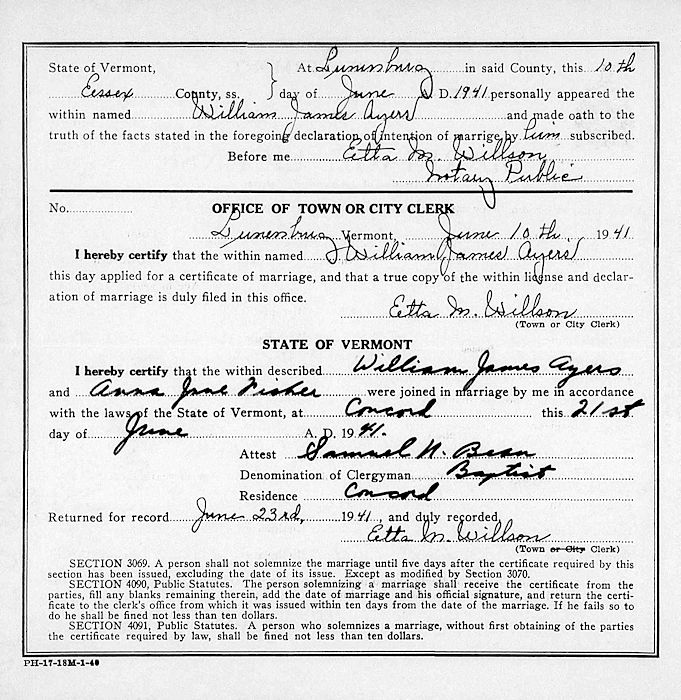 State of Vermont, } At Lunenburg in said County, this 10th
Essex County, ss. day of June A. D. 1941 personally appeared the
within named William James Ayers and made oath to the
truth of the facts stated in the foregoing declaration of intention of marriage by him subscribed.
Before me Etta M. Willson
Notary Public
No. OFFICE OF TOWN OR CITY CLERK
Lunenburg Vermont, June 10th, 1941
I hereby certify that the within named William James Ayers
this day applied for a certificate of marriage, and that a true copy of the within license and declar-
ation of marriage is duly filed in this office.
Etta M. Willson
(Town or City Clerk)
STATE OF VERMONT
I hereby certify that the within described William James Ayers
and Anna Jane Fisher were joined in marriage by me in accordance
with the laws of the State of Vermont, at Concord this 21st
day of June A. D. 1941.
Attest Samuel N. Bean
Denomination of Clergyman Baptist
Residence Concord
Returned for record June 23rd, 1941, and duly recorded
Etta M. Willson
(Town or City Clerk)
SECTION 3069. A person shall not solemnize the marriage until five days after the certificate required by this
section has been issued, excluding the date of its issue. Except as modified by Section 3070.
SECTION 4090, Public Statutes. The person solemnizing a marriage shall receive the certificate from the
parties, fill any blanks remaining therein, add the date of marriage and his official signature, and return the certi-
ficate to the clerk's office from which it was issued within ten days from the date of the marriage. If he fails so to
do he shall be fined not less than ten dollars.
SECTION 4091, Public Statutes. A person who solemnizes a marriage, without first obtaining of the parties
the certificate required by law, shall be fined not less than ten dollars.
PH-17-18M-1-40